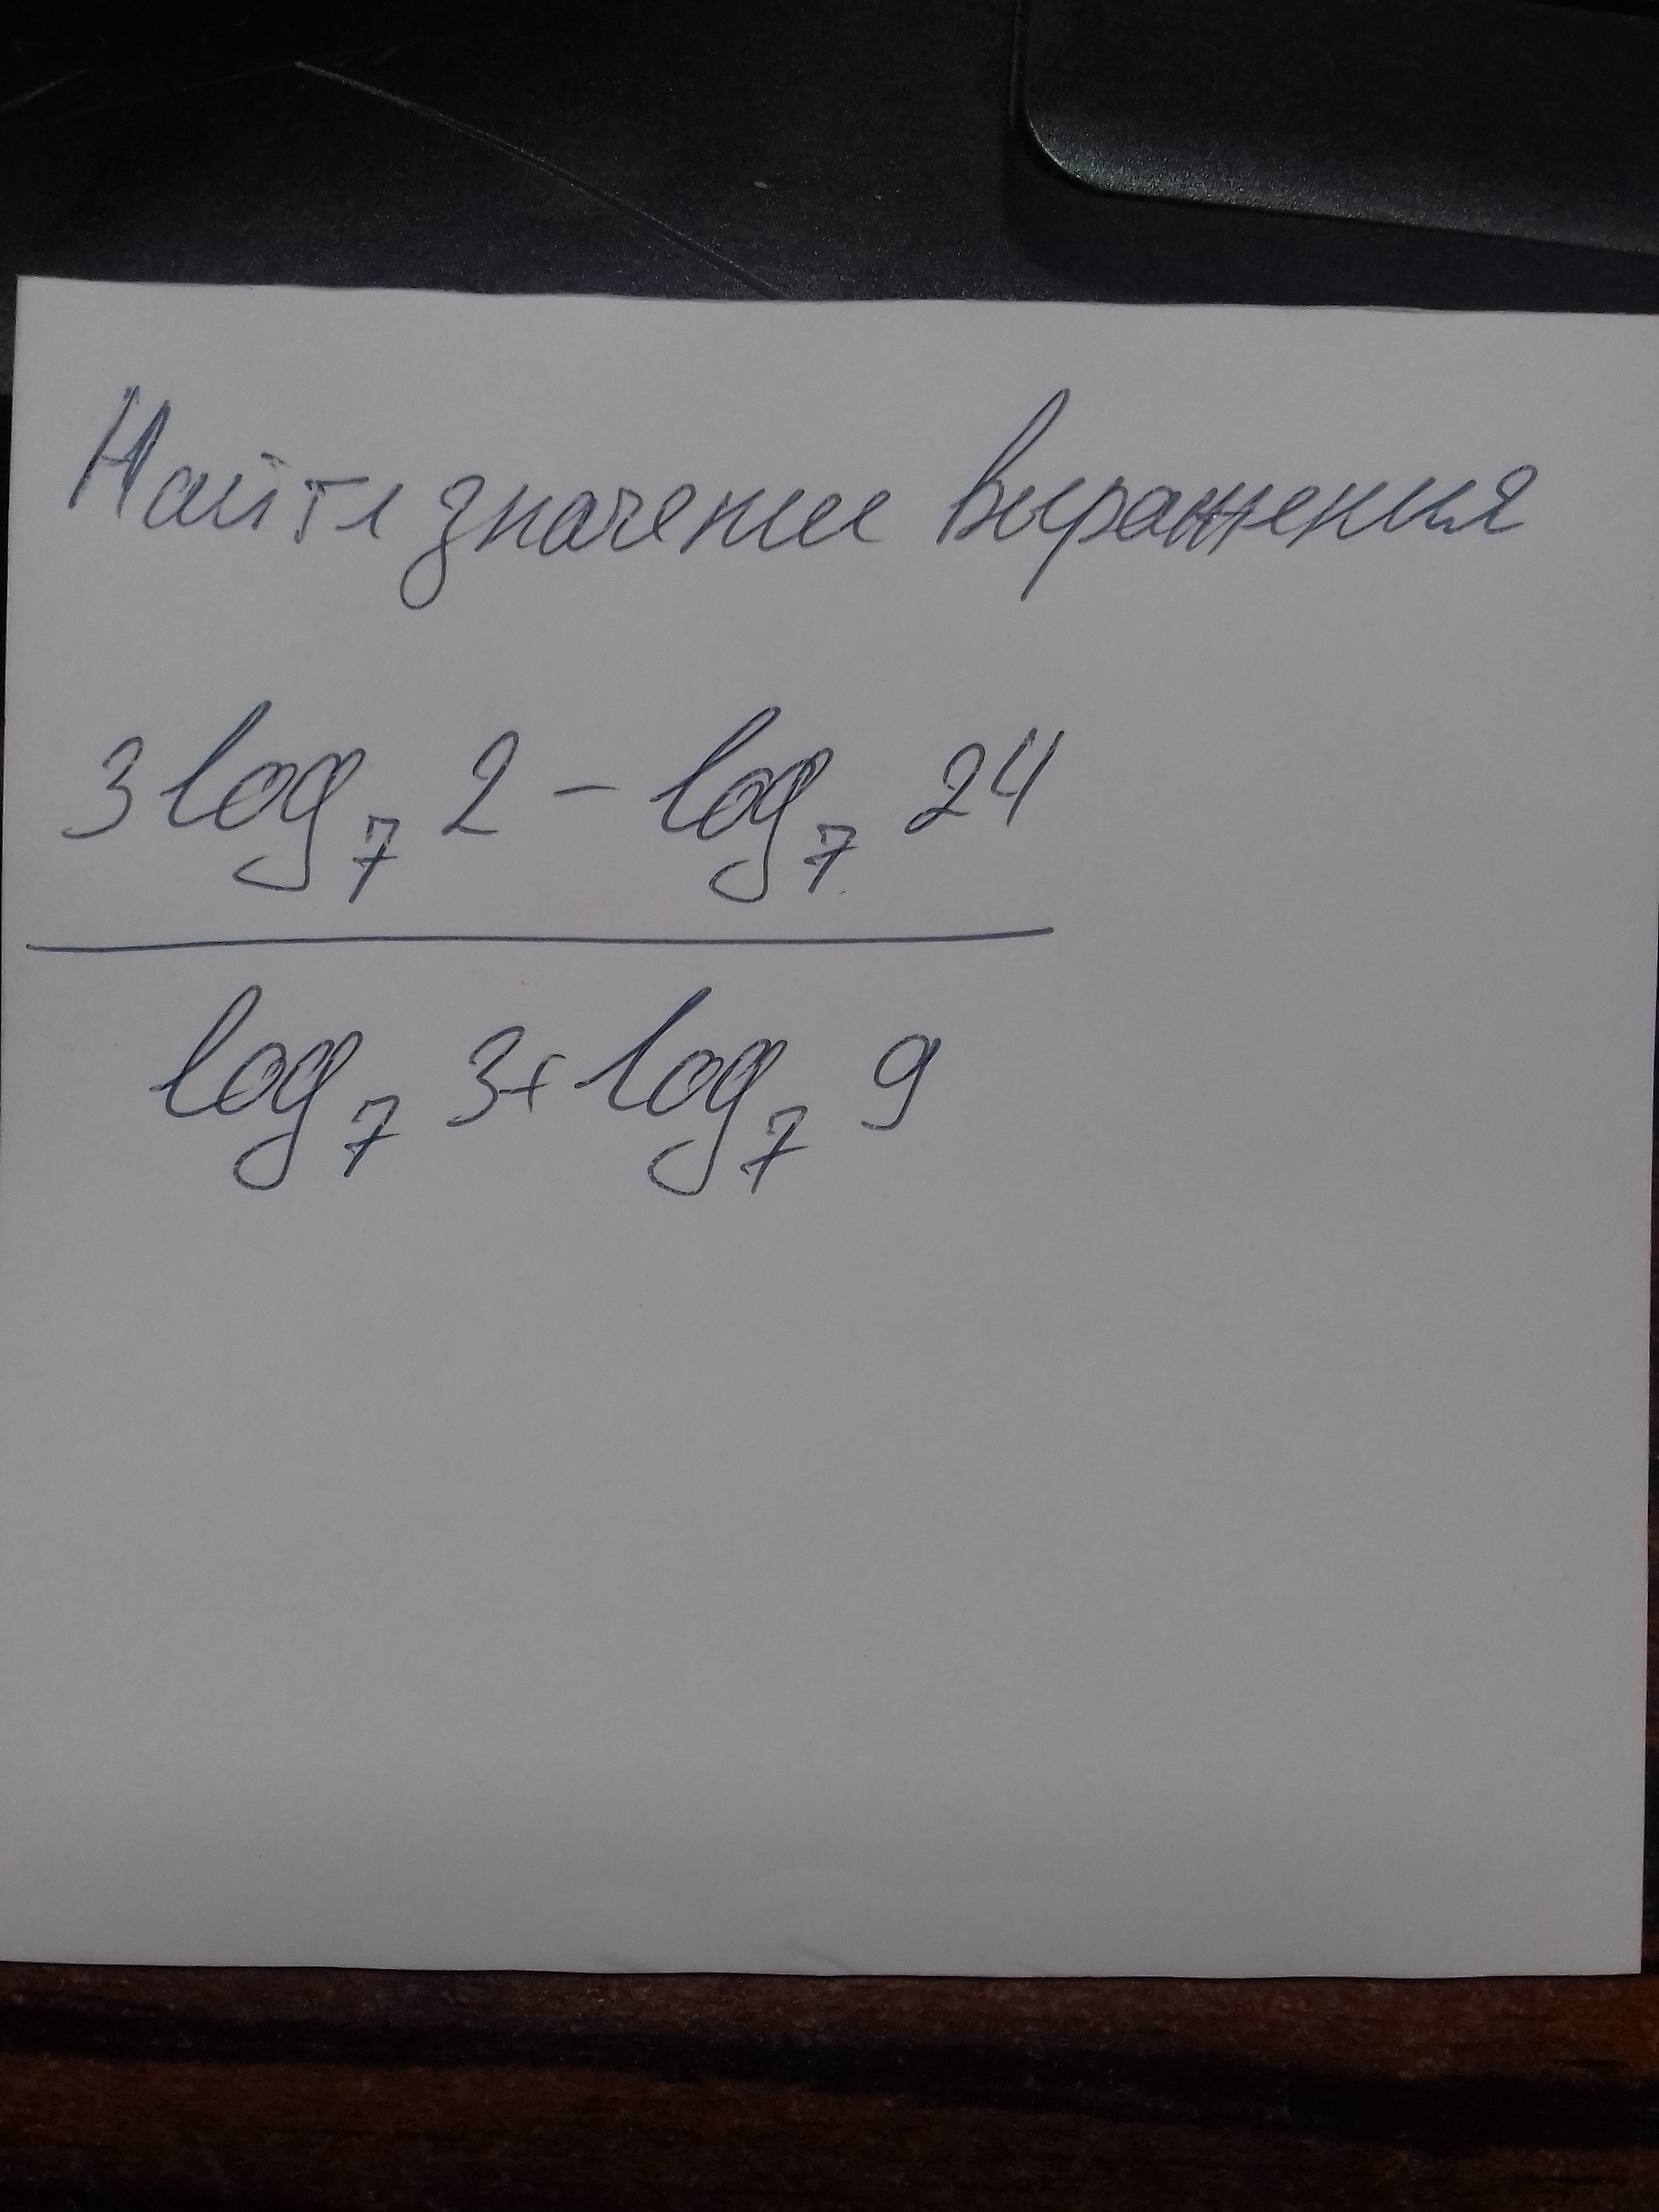 Найти значение выражения
3 log₇ 2 - log₇ 24
log₇ 3 + log₇ 9